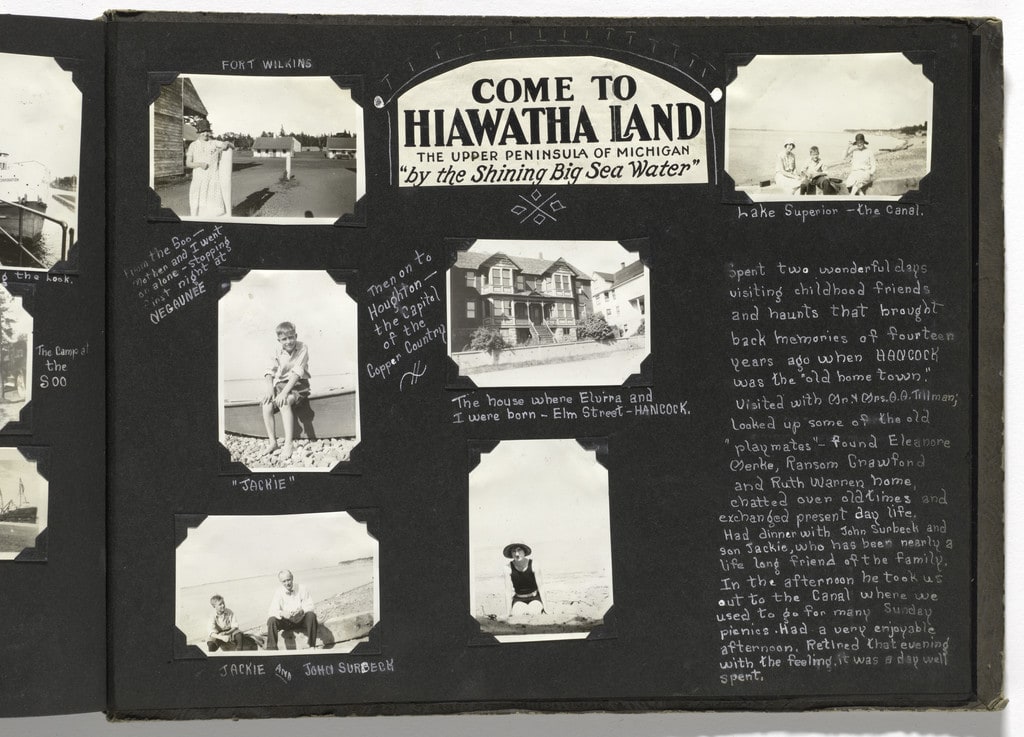 g the Lock.
The Camp at
the
SOO
FORT WILKINS
COME TO
HIAWATHA LAND
THE UPPER PENINSULA OF MICHIGAN
"by the Shining Big Sea Water"
Lake Superior - the Canal.
From the Soo -
Mother and I went
on alone - stopping
first night at
NEGAUNEE
Then on to
Houghton -
the Capitol
of the
Copper Country
"JACKIE"
The house where Elvira and
I were born - Elm Street - HANCOCK.
JACKIE AND JOHN SURBECK
Spent two wonderful days
visiting childhood friends
and haunts that brought
back memories of fourteen
years ago when HANCOCK
was the "old home town."
Visited with Mr. & Mrs. O.A. Tillman;
looked up some of the old
"playmates" - found Eleanore
Merke, Ransom Crawford
and Ruth Warren home,
chatted over old times and
exchanged present day life.
Had dinner with John Surbeck and
son Jackie, who has been nearly a
life long friend of the family.
In the afternoon he took us
out to the Canal where we
used to go for many Sunday
picnics. Had a very enjoyable
afternoon. Retired that evening
with the feeling, it was a day well
spent.